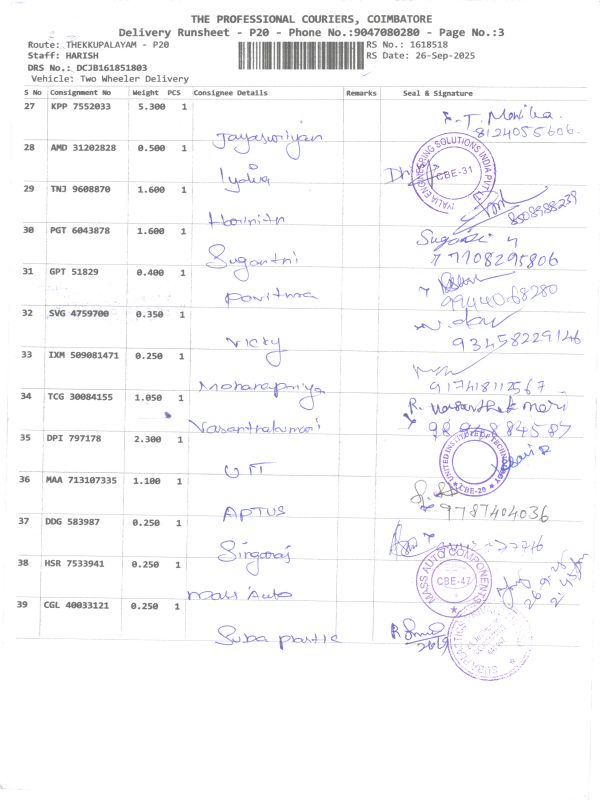 THE PROFESSIONAL COURIERS, COIMBATORE
Delivery Runsheet - P20 - Phone No.:9047080280 - Page No.:3
Route: THEKKUPALAYAM - P20
RS No.: 1618518
Staff: HARISH
RS Date: 26-Sep-2025
DRS No.: DCJB161851803
Vehicle: Two Wheeler Delivery
S No Consignment No Weight PCS Consignee Details Remarks Seal & Signature
27 KPP 7552033 5.300 1
8124055606
28 AMD 31202828 0.500 1
CBE-31
29 TNJ 9608870 1.600 1
8508988239
30 PGT 6043878 1.600 1
Sugantni
7708295806
31 GPT 51829 0.400 1
Pavithra
9944068280
32 SVG 4759700 0.350 1
Vicky
93458229146
33 IXM 509081471 0.250 1
Moharapriya
917418112567
34 TCG 30084155 1.050 1
Vasanthakumari
35 DPI 797178 2.300 1
UIT
CBE-20
36 MAA 713107335 1.100 1
APTUS
9787404036
37 DDG 583987 0.250 1
Singaraj
38 HSR 7533941 0.250 1
Mass Auto
MASS AUTO COMPONENTS
CBE-47
39 CGL 40033121 0.250 1
Suba plastic